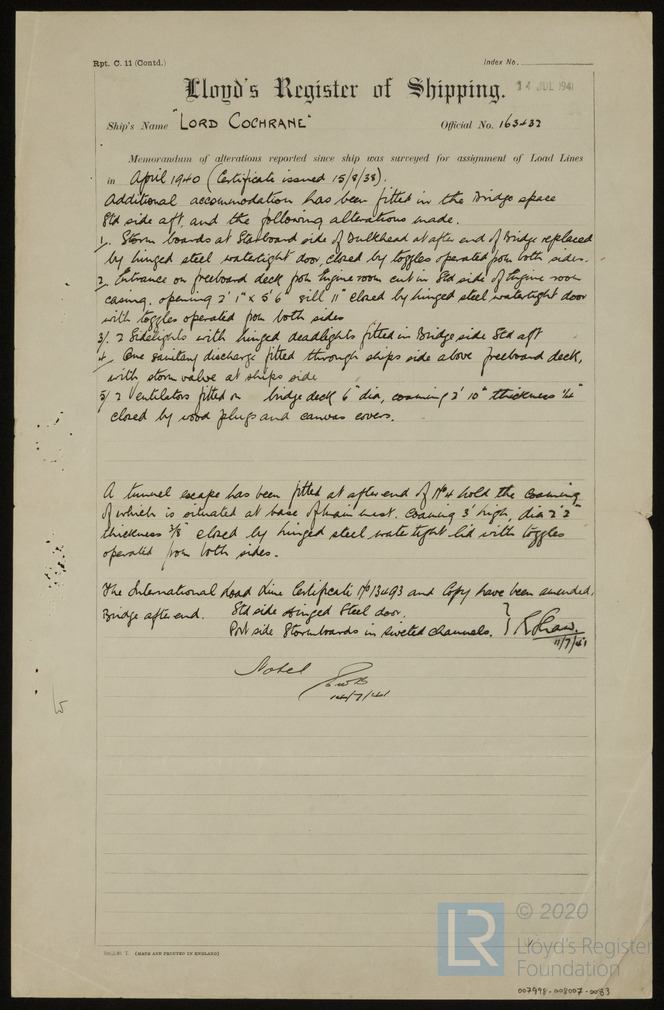 Rpt. C. 11 (Contd.)
Index No.
Lloyd's Register of Shipping.
14 JUL 1941
Ship's Name "LORD COCHRANE"
Official No. 163432
Memorandum of alterations reported since ship was surveyed for assignment of Load Lines
in April 1940 (Certificate issued 15/8/38).
Additional accommodation has been fitted in the Bridge space
Std side aft, and the following alterations made.
1. Storm boards at Starboard side of Bulkhead at after end of Bridge replaced
by hinged steel watertight door, closed by toggles operated from both sides.
2. Entrance on freeboard deck from Engine room cut in Std side of Engine room
casing. opening 2' 1" x 5' 6" sill 11" closed by hinged steel watertight door
with toggles operated from both sides
3/. 2 Sidelights with hinged deadlights fitted in Bridge side Std aft
4/. One sanitary discharge fitted through ships side above freeboard deck,
with storm valve at ships side
5/ 2 ventilators fitted on bridge deck 6" dia, coaming 2' 10" thickness 1/4"
closed by wood plugs and canvas covers.
A tunnel escape has been fitted at after end of No 4 hold the coaming
of which is situated at base of main mast. Coaming 3' high, dia 2' 2"
thickness 3/8" closed by hinged steel watertight lid with toggles
operated from both sides.
The International Load Line Certificate No 13493 and Copy have been amended.
Bridge after end. Std side Hinged Steel door.
Port side Stormboards in riveted channels.
11/7/41
Noted
14/7/41
(MADE AND PRINTED IN ENGLAND)
LR
© 2020
Lloyd's Register
Foundation
007998-008007-0083